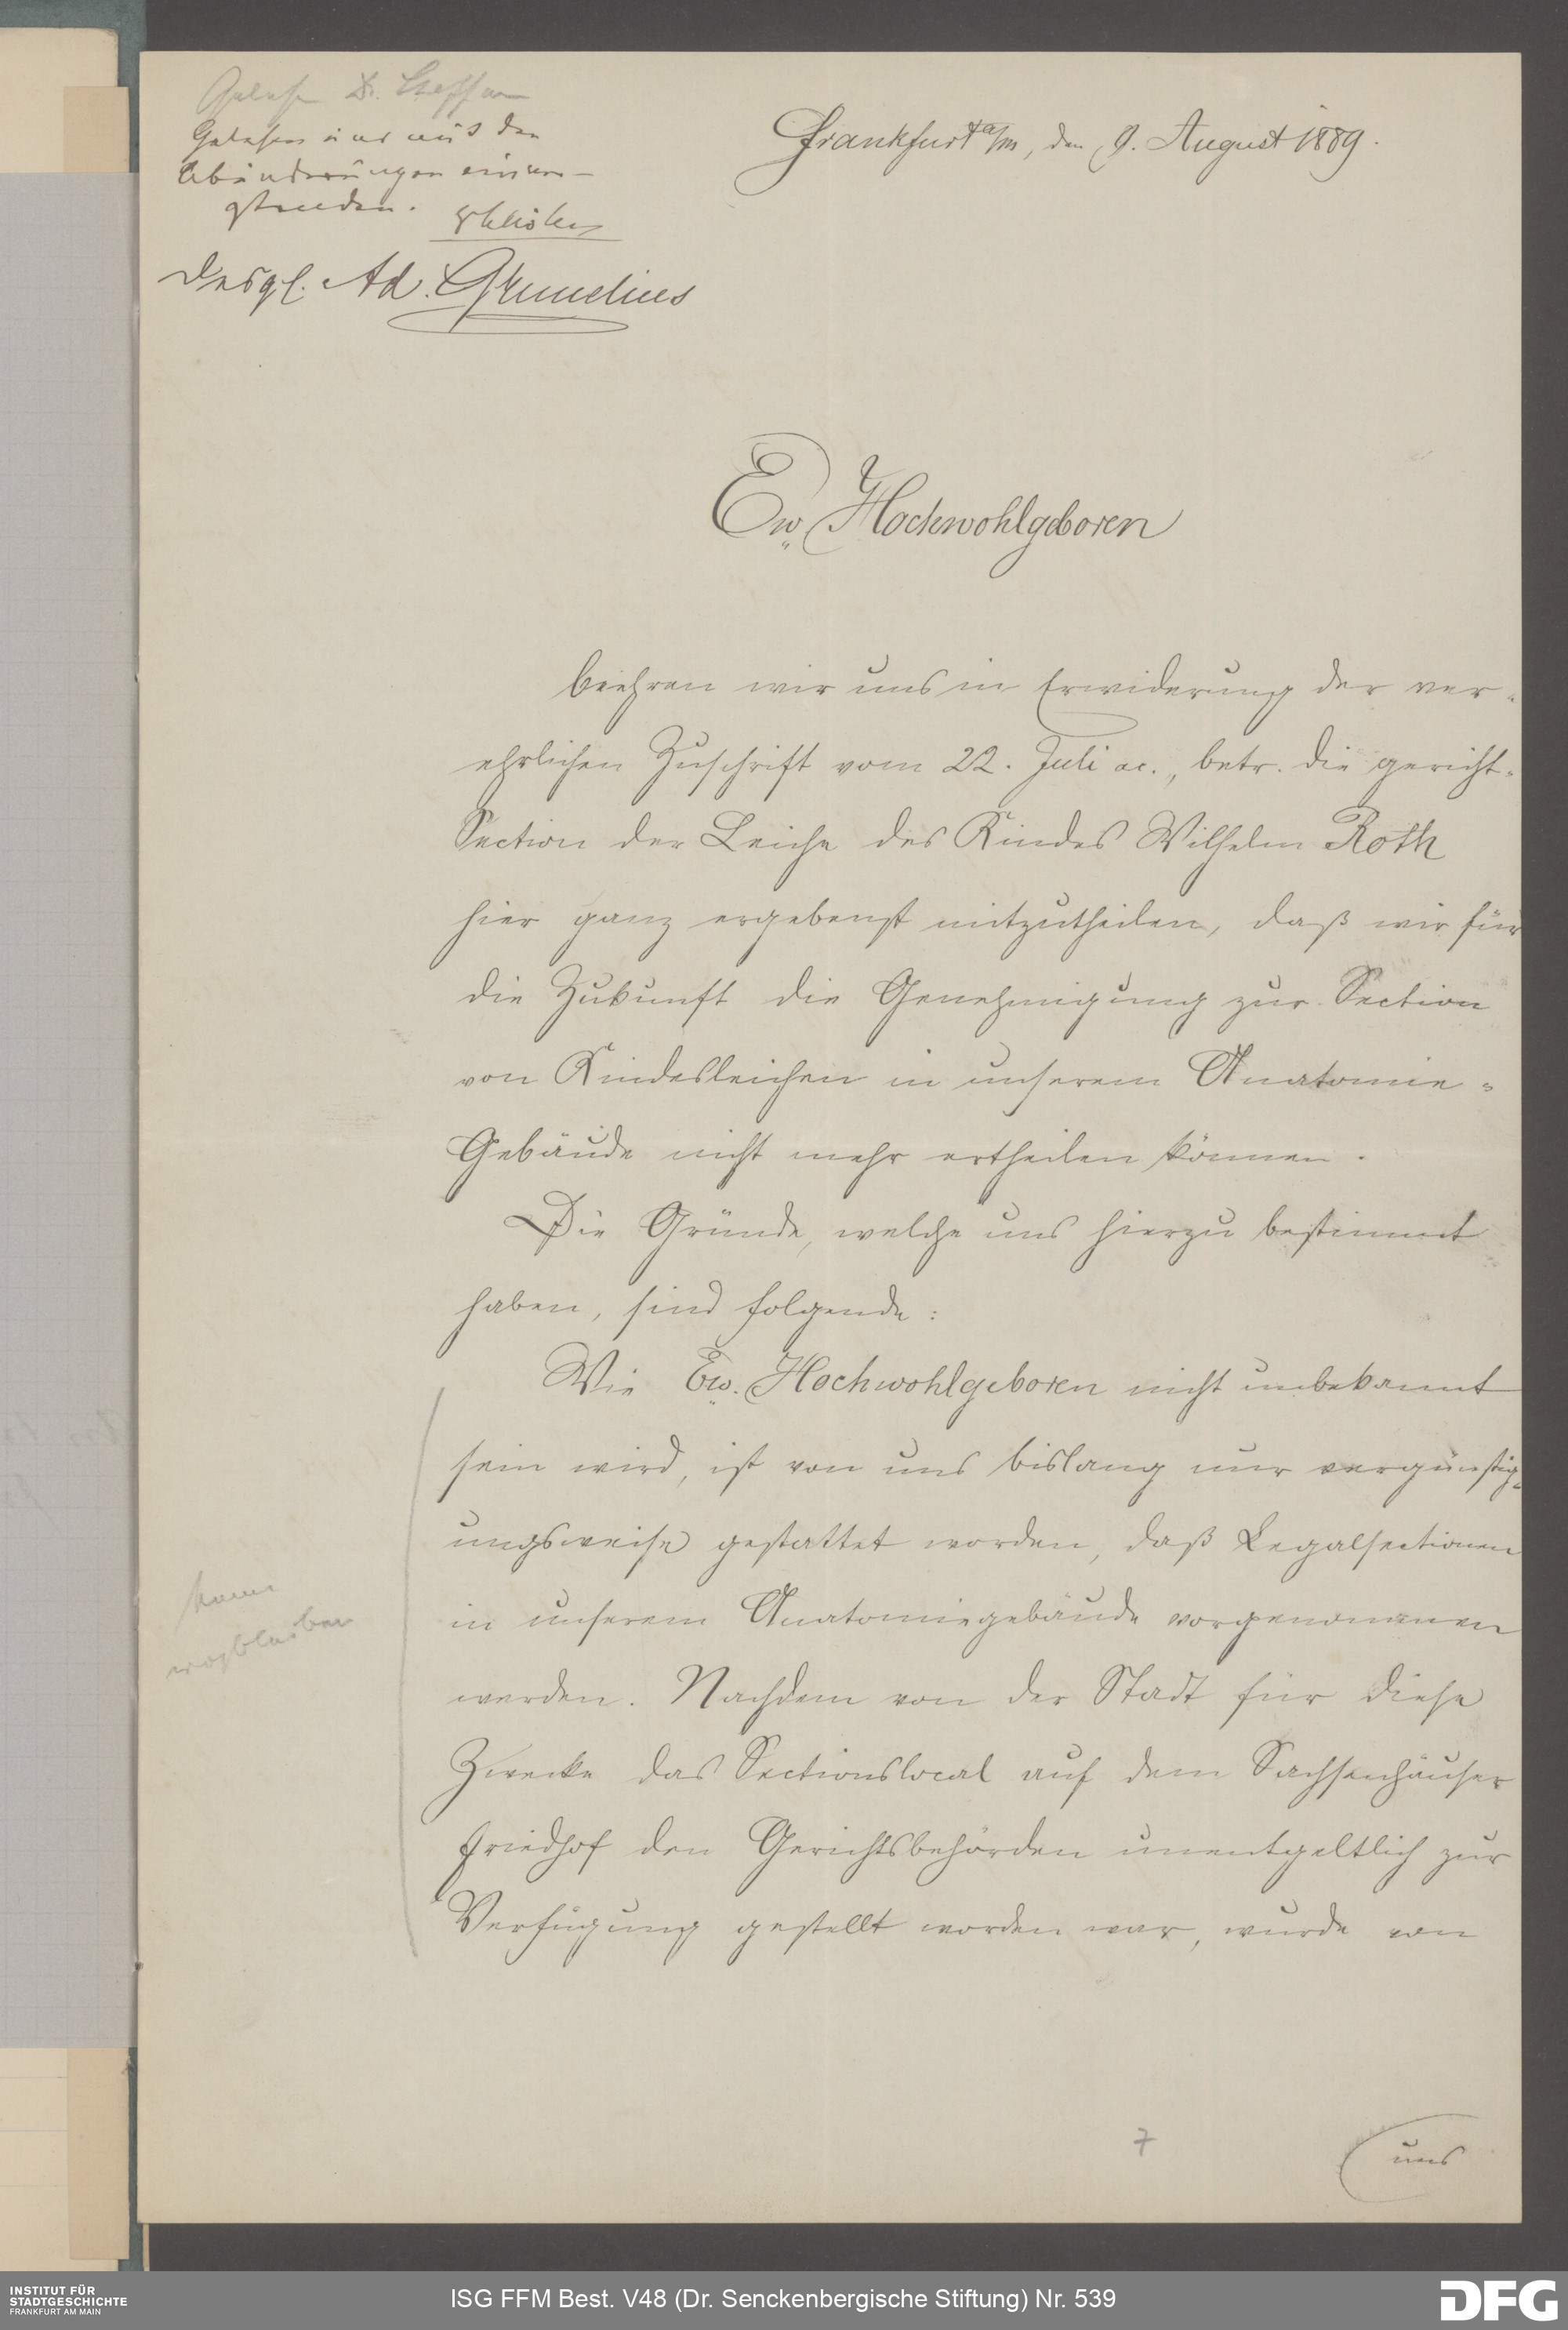 Gelesen Dr. Steffan
Gelesen und mit den
Abänderungen einver-
standen.
Desgl. Ad. Grunelius
Frankfurt a/m, den 9. August 1889.
Ew. Hochwohlgeboren
beehren wir uns in Erwiderung der ver-
ehrlichen Zuschrift vom 22. Juli ac., betr. die gericht-
Section der Leiche des Kindes Wilhelm Roth
hier ganz ergebenst mitzutheilen, daß wir für
die Zukunft die Genehmigung zur Section
von Kindesleichen in unserem Anatomie-
Gebäude nicht mehr ertheilen können.
Die Gründe, welche uns hierzu bestimmt
haben, sind folgende:
Wie Ew. Hochwohlgeboren nicht unbekannt
sein wird, ist von uns bislang nur vergünstig-
ungsweise gestattet worden, daß Legalsectionen
in unserem Anatomiegebäude vorgenommen
werden. Nachdem von der Stadt für diese
Zwecke das Sectionslocal auf dem Sachsenhäuser
Friedhof den Gerichtsbehörden unentgeltlich zur
Verfügung gestellt worden war, wurde von
kann
wegbleiben
7
uns
INSTITUT FÜR
STADTGESCHICHTE
FRANKFURT AM MAIN
ISG FFM Best. V48 (Dr. Senckenbergische Stiftung) Nr. 539
DFG